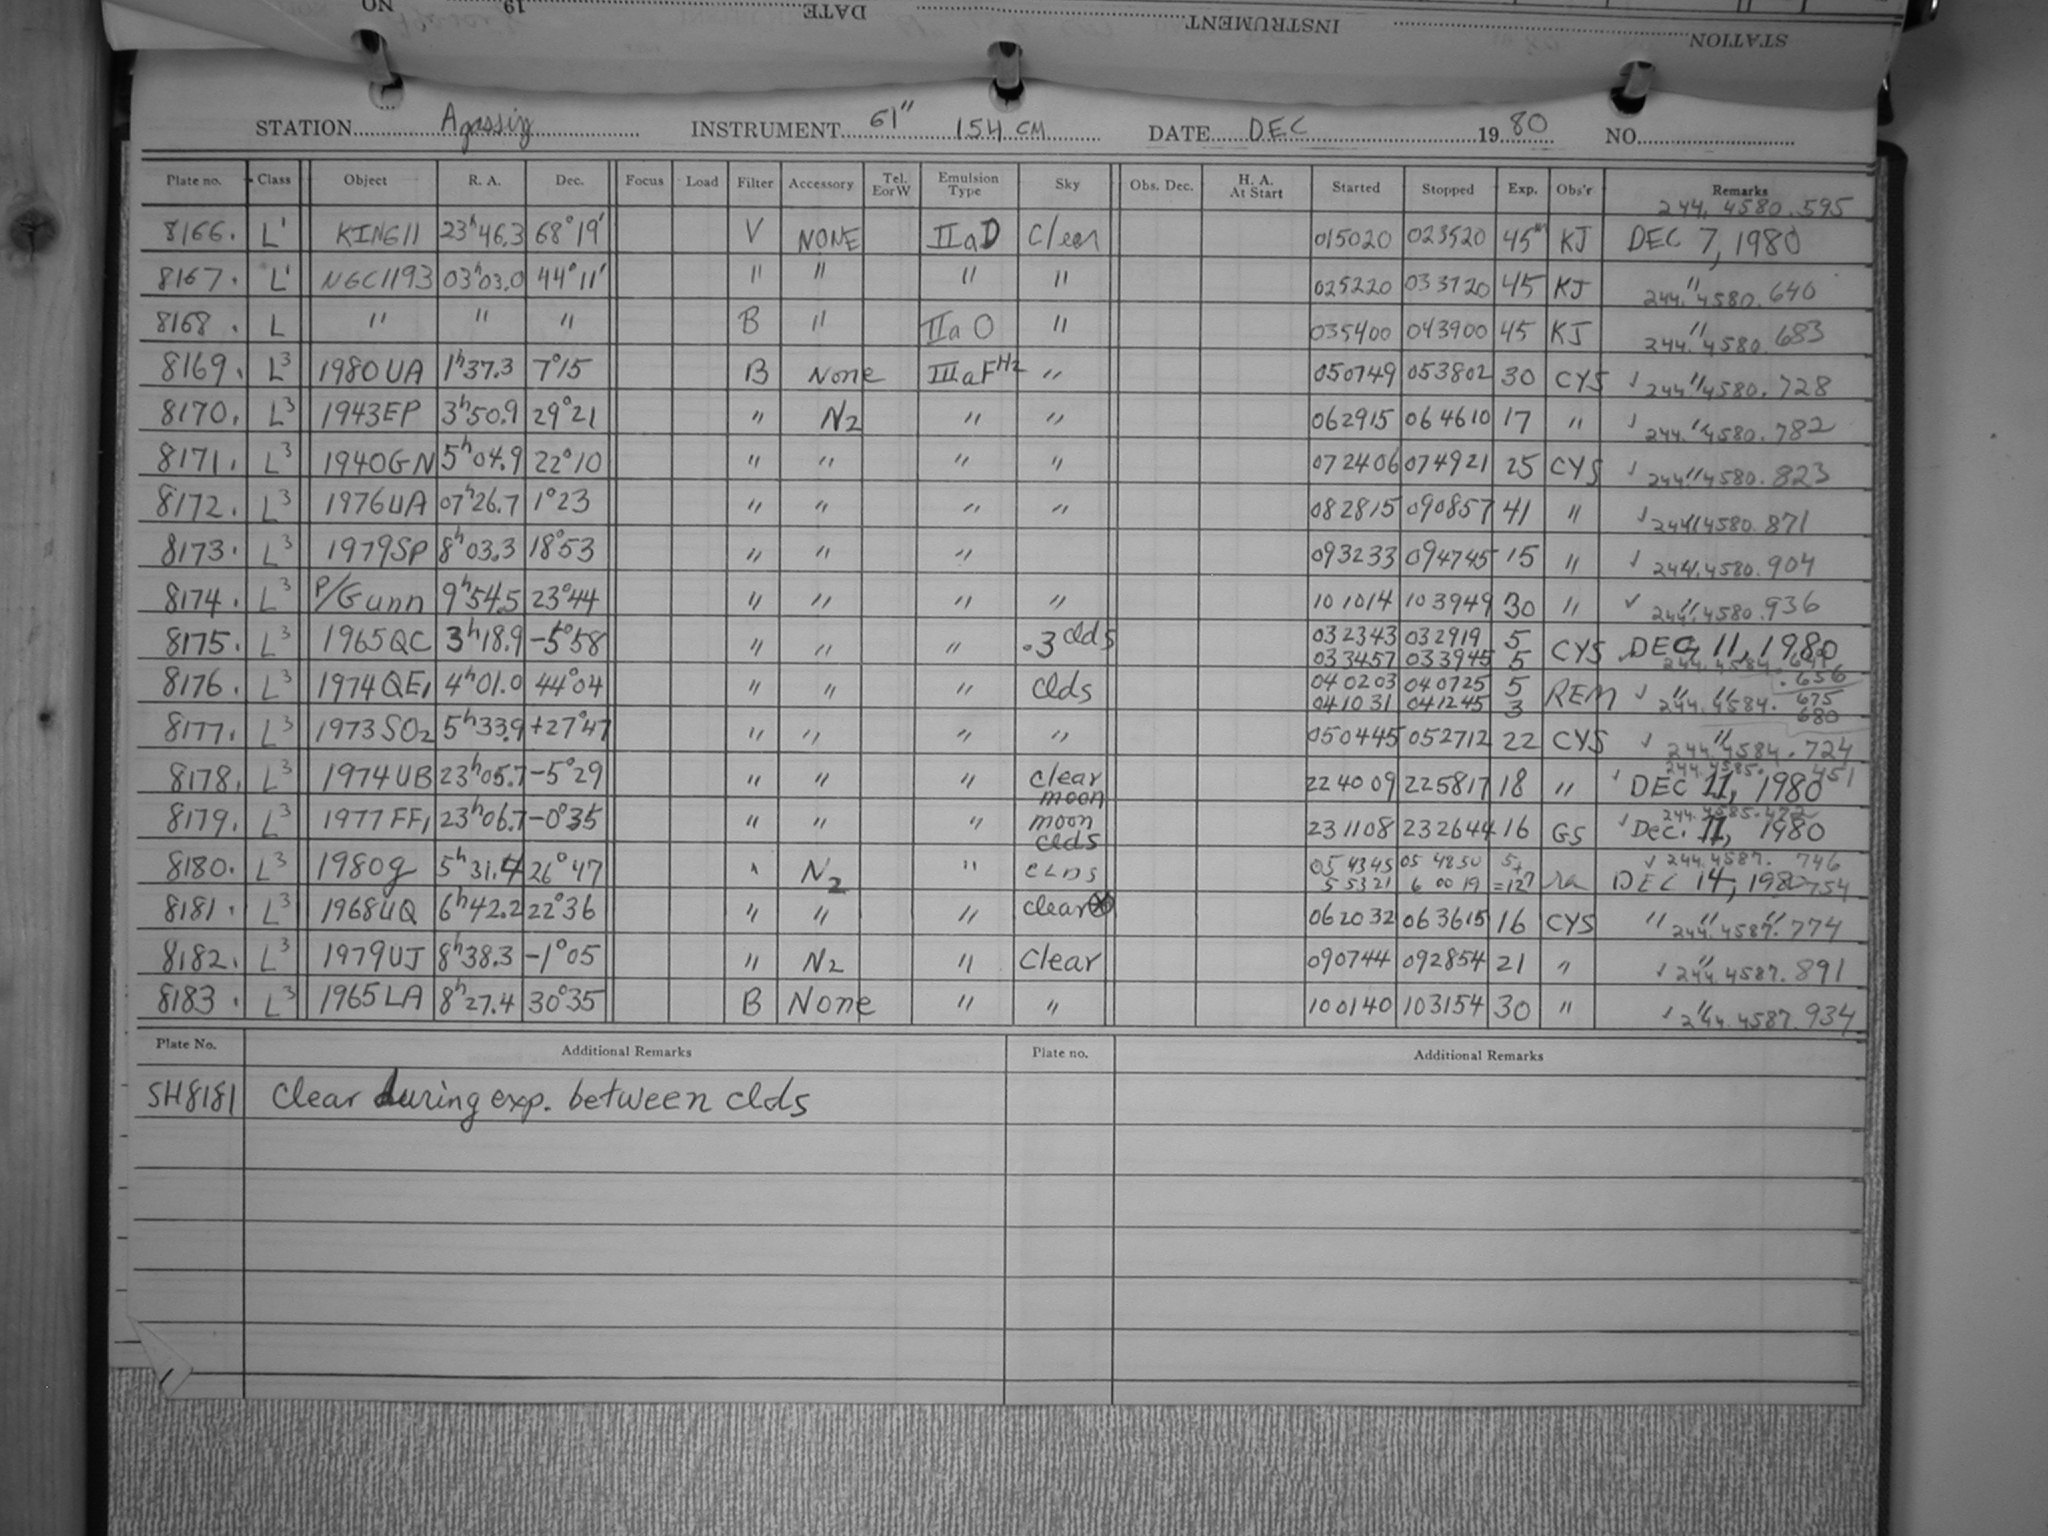 NO 19 DATE INSTRUMENT STATION
STATION Agassiz INSTRUMENT 61" 154 CM DATE DEC 1980 NO.
Plate no. Class Object R. A. Dec. Focus Load Filter Accessory Tel. E or W Emulsion Type Sky Obs. Dec. H. A. At Start Started Stopped Exp. Obs'r Remarks
244.4580.595
8166. L' KING11 23h46.3 68°19' V NONE IIaD Clear 015020 023520 45m KJ DEC 7, 1980
8167. L' NGC1193 03h03.0 44°11' " " " " 025220 033720 45 KJ " 244.4580.640
8168. L " " " B " IIaO " 035400 043900 45 KJ " 244.4580.683
8169. L3 1980UA 1h37.3 7°15 B None IIIaFH2 " 050749 053802 30 CYS ✓ " 244.4580.728
8170. L3 1943EP 3h50.9 29°21 " N2 " " 062915 064610 17 " ✓ " 244.4580.782
8171. L3 1940GN 5h04.9 22°10 " " " " 072406 074921 25 CYS ✓ " 244.4580.823
8172. L3 1976UA 07h26.7 1°23 " " " " 082815 090857 41 " ✓ " 244.4580.871
8173. L3 1979SP 8h03.3 18°53 " " " 093233 094745 15 " ✓ " 244.4580.904
8174. L3 P/Gunn 9h54.5 23°44 " " " " 101014 103949 30 " ✓ " 244.4580.936
8175. L3 1965QC 3h18.9 -5°58 " " " .3 clds 032343 032919 5 CYS DEC 11, 1980
033457 033945 5 244.4584. .656
8176. L3 1974QE1 4h01.0 44°04 " " " clds 040203 040725 5 REM ✓ " " 244.4584. 675
041031 041245 3 680
8177. L3 1973SO2 5h33.9 +27°47 " " " " 050445 052712 22 CYS ✓ " 244.4584.724
244.4585.451
8178. L3 1974UB 23h05.7 -5°29 " " " clear moon 224009 225817 18 " ✓ DEC 11, 1980
244.4585.472
8179. L3 1977FF1 23h06.7 -0°35 " " " moon clds 231108 232644 16 GS ✓ Dec. 11, 1980
8180. L3 1980g 5h31.4 26°47 " N2 " CLDS 054345 054850 5+ ✓ 244.4587. 746
55321 60019 =12? DEC 14, 1980 754
8181. L3 1968UQ 6h42.2 22°36 " " " clear ⊗ 062032 063615 16 CYS " " " 244.4587.774
8182. L3 1979UJ 8h38.3 -1°05 " N2 " Clear 090744 092854 21 " ✓ " 244.4587.891
8183. L3 1965LA 8h27.4 30°35 B None " " 100140 103154 30 " ✓ " 244.4587.934
Plate No. Additional Remarks Plate no. Additional Remarks
SH8181 Clear during exp. between clds